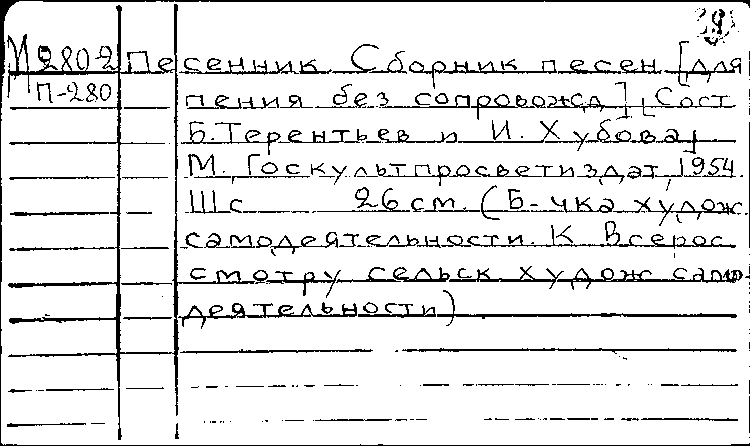 М 280-2 Песенник. Сборник песен [для
П-280 пения без сопровожд.] [Сост.
Б. Терентьев и И. Хубова]
М., Госкультпросветиздат, 1954.
111 с 26 см. (Б-чка худож.
самодеятельности. К Всерос.
смотру сельск. худож. само-
деятельности)